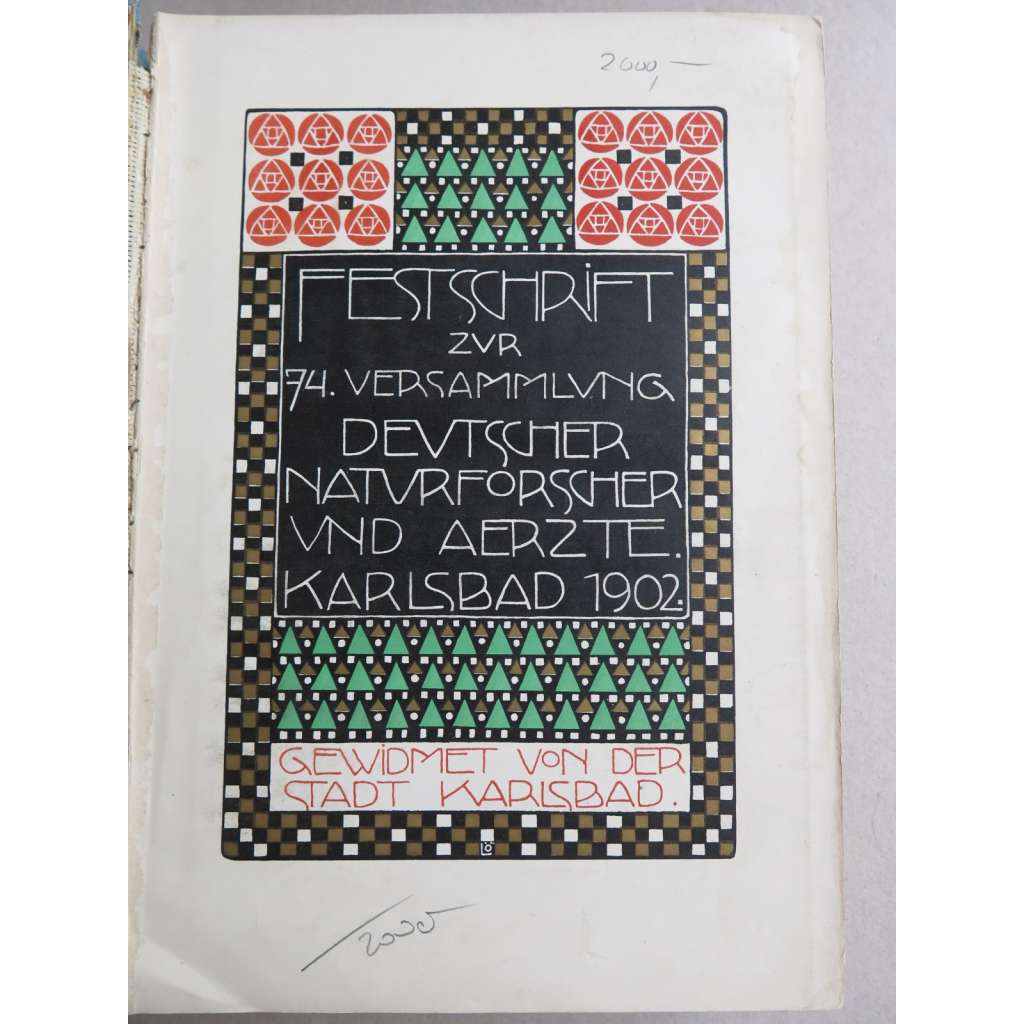 2000,—
FESTSCHRIFT
ZVR
74. VERSAMMLVNG
DEVTSCHER
NATVRFORSCHER
VND AERZTE.
KARLSBAD 1902.
GEWIDMET VON DER
STADT KARLSBAD.
LÖ
2000